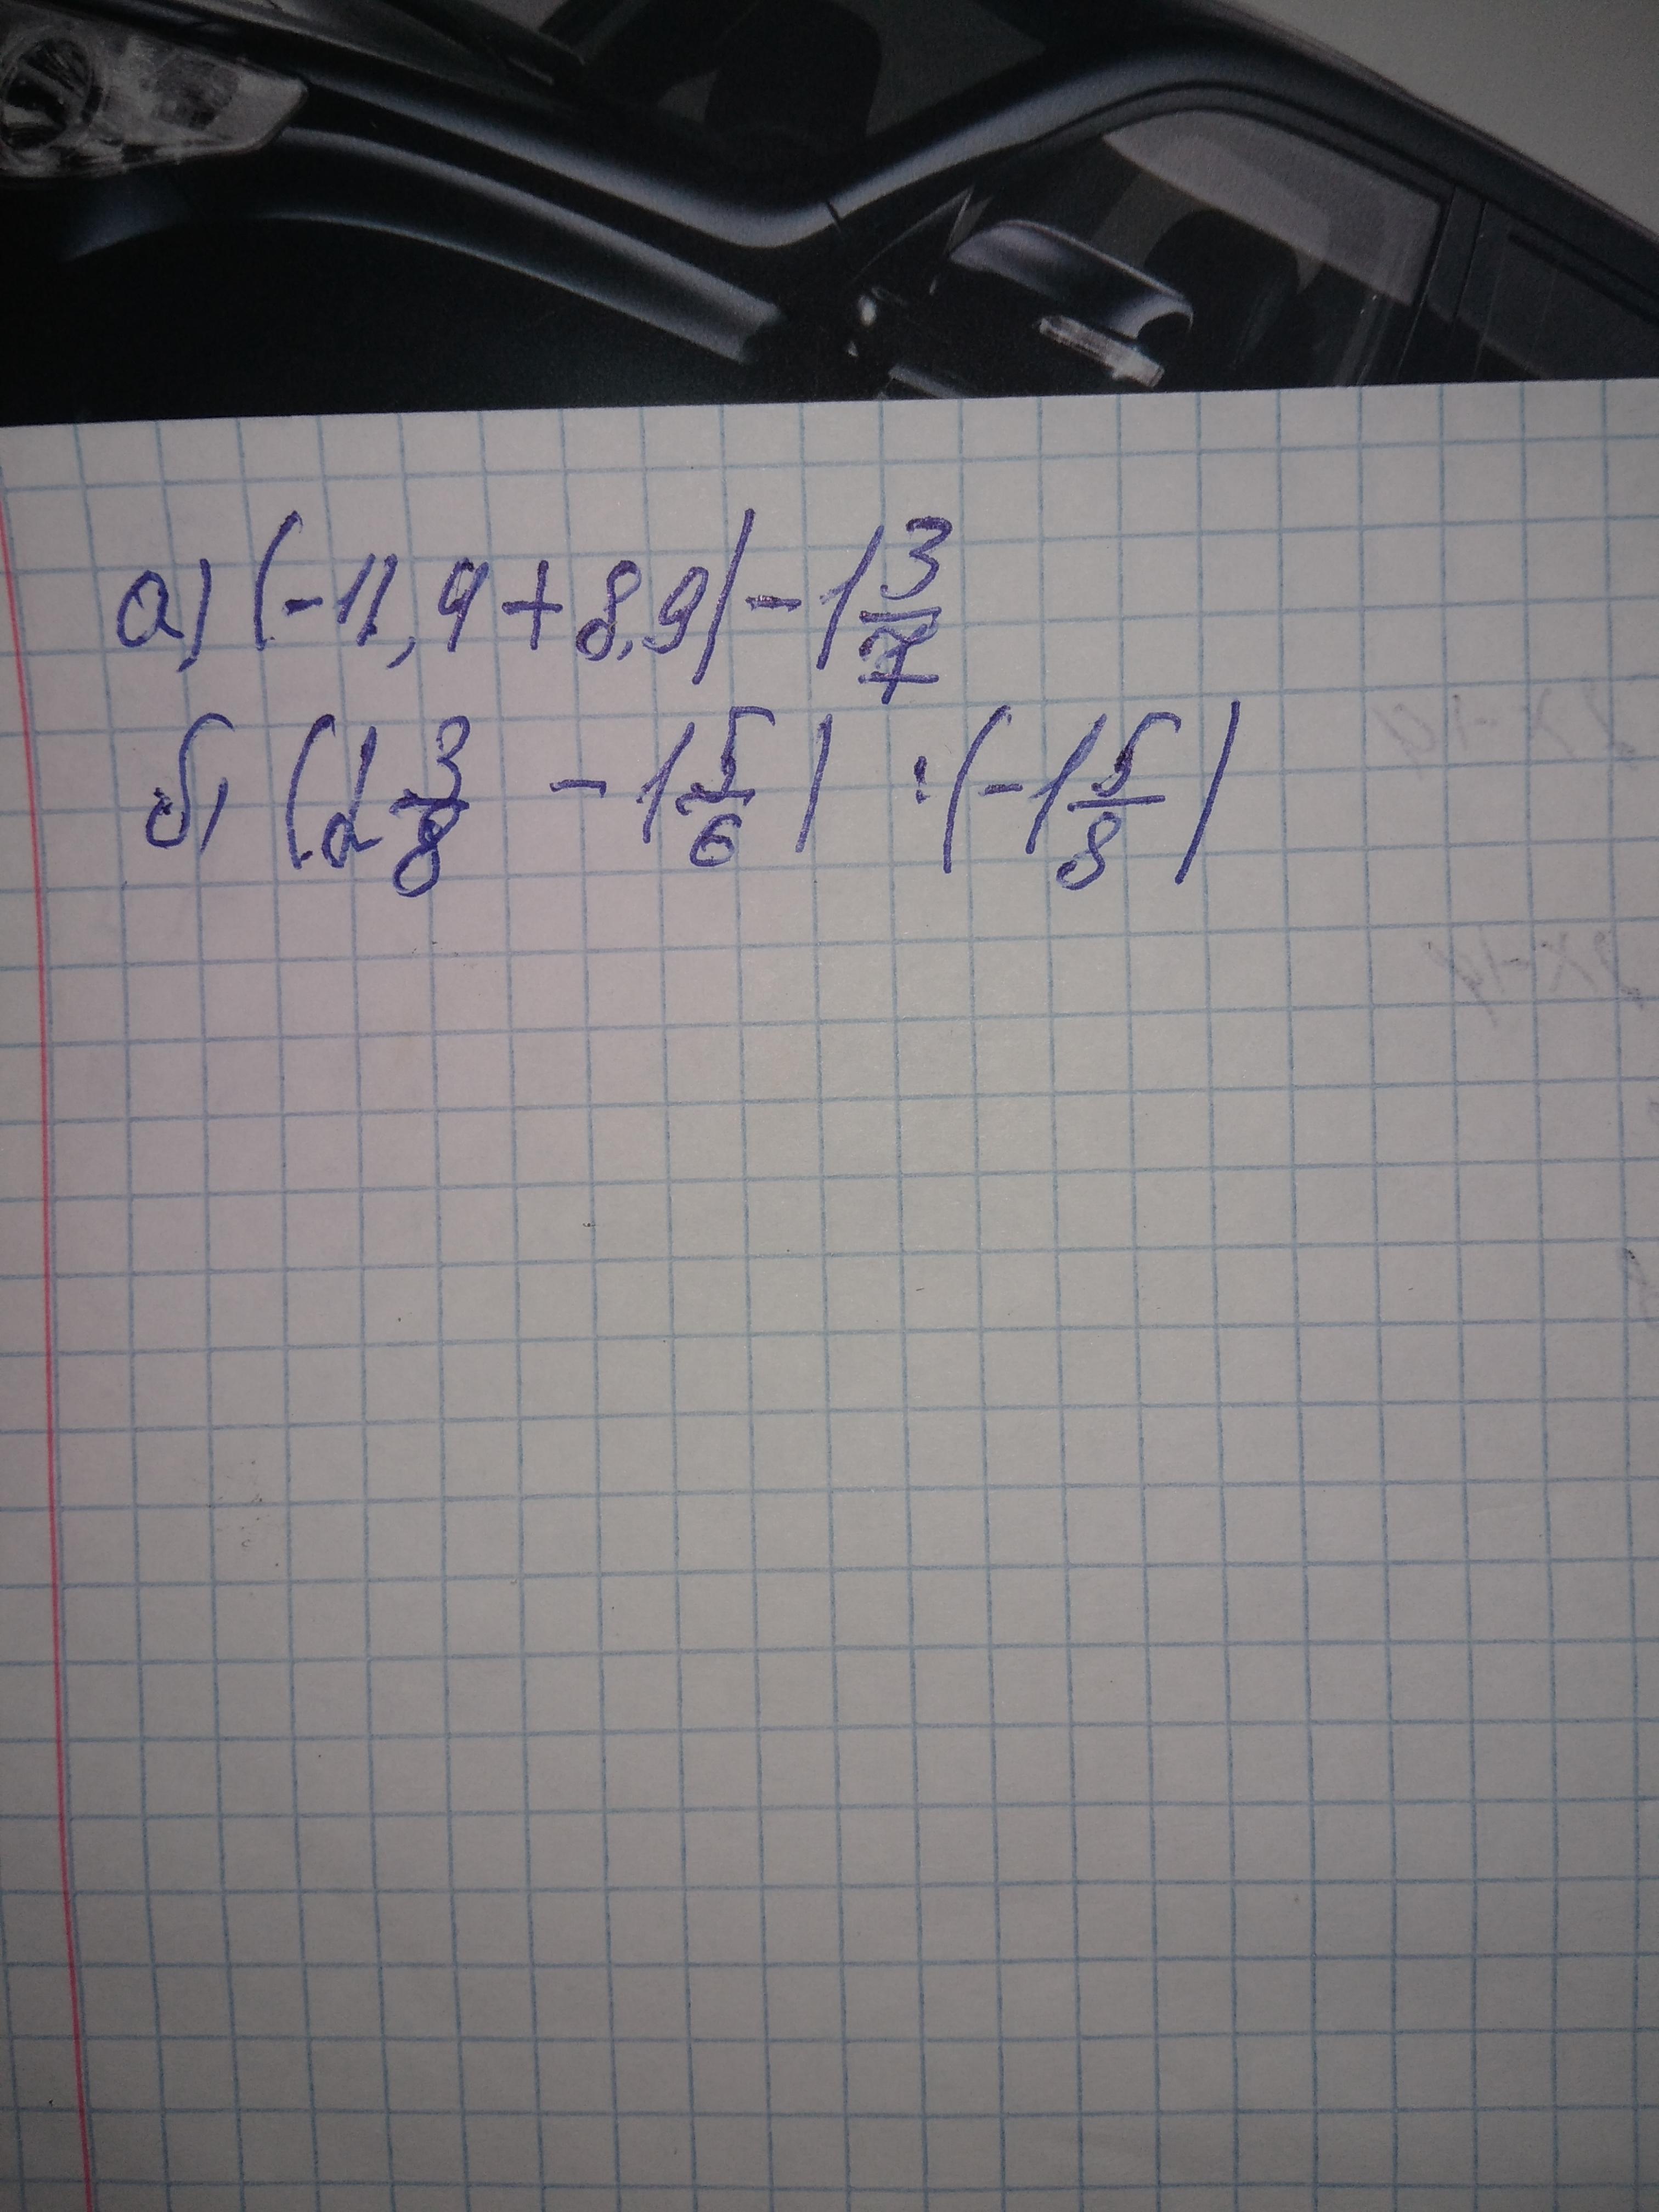 а) (-11,9+8,9)-1 3/7
б) (2 3/8 - 1 5/6) : (-1 5/8)